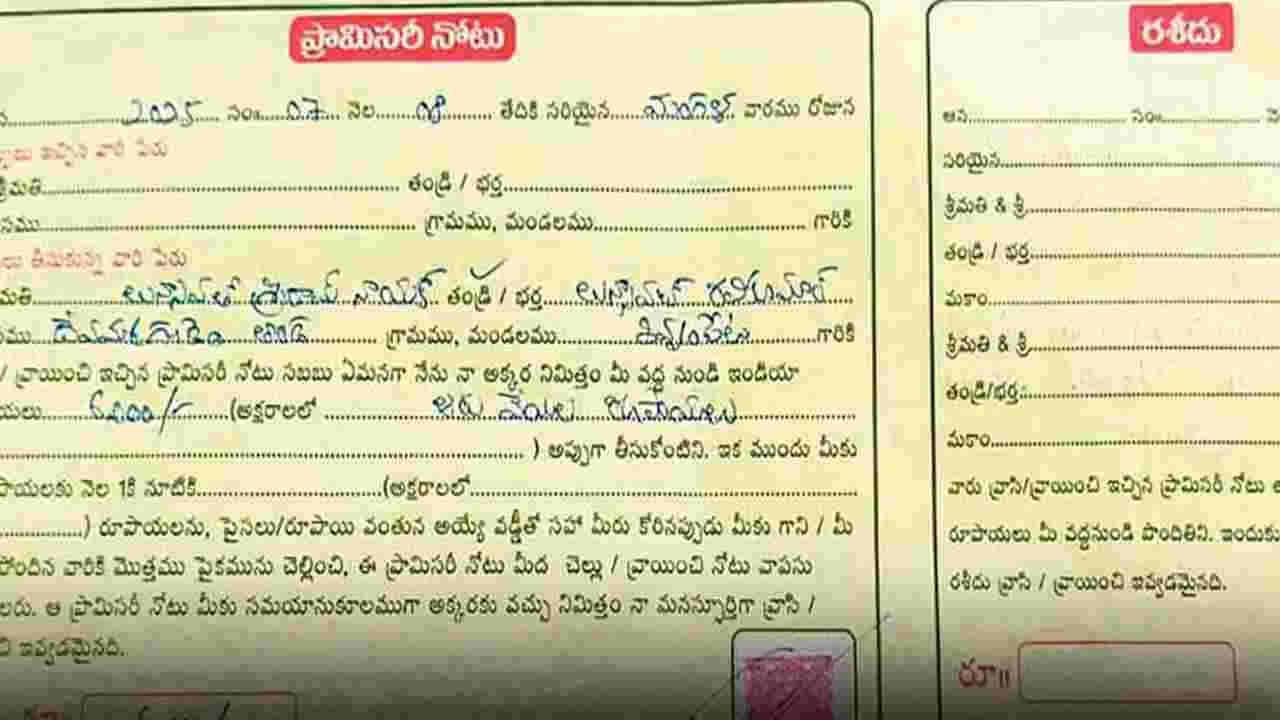 ప్రామిసరీ నోటు
2025 సం॥ 07 నెల 08 తేదికి సరియైన మంగళ వారము రోజున
ఇచ్చిన వారి పేరు
శ్రీమతి తండ్రి / భర్త
గ్రామము, మండలము గారికి
తీసుకున్న వారి పేరు
మతి లునావతో శ్రీరామ్ నాయక్ తండ్రి / భర్త లునావత్ రవికుమార్
గ్రామము, మండలము గారికి
/ వ్రాయించి ఇచ్చిన ప్రామిసరీ నోటు సబబు ఏమనగా నేను నా అక్కర నిమిత్తం మీ వద్ద నుండి ఇండియా
యలు 6000/- (అక్షరాలలో ఆరు వేయిలు రూపాయలు
) అప్పుగా తీసుకోంటిని. ఇక ముందు మీకు
పాయలకు నెల 1కి నూటికి (అక్షరాలలో
) రూపాయలను, పైసలు/రూపాయి వంతున అయ్యే వడ్డీతో సహా మీరు కోరినప్పుడు మీకు గాని / మీ
పోందిన వారికి మొత్తము పైకమును చెల్లించి, ఈ ప్రామిసరీ నోటు మీద చెల్లు / వ్రాయించి నోటు వాపసు
లరు. ఆ ప్రామిసరీ నోటు మీకు సమయానుకూలముగా అక్కరకు వచ్చు నిమిత్తం నా మనస్ఫూర్తిగా వ్రాసి /
చి ఇవ్వడమైనది.
రశీదు
ఆన సం॥
సరియైన
శ్రీమతి & శ్రీ
తండ్రి / భర్త
మకాం
శ్రీమతి & శ్రీ
తండ్రి/భర్త:
మకాం
వారు వ్రాసి/వ్రాయించి ఇచ్చిన ప్రామిసరీ నోటు
రూపాయలు మీ వద్దనుండి పొందితిని. ఇందుకు
రశీదు వ్రాసి / వ్రాయించి ఇవ్వడమైనది.
రూ॥